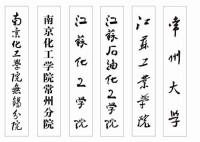 南京化工学院无锡分院
南京化工学院常州分院
江苏化工学院
江苏石油化工学院
江苏工业学院
常州大学